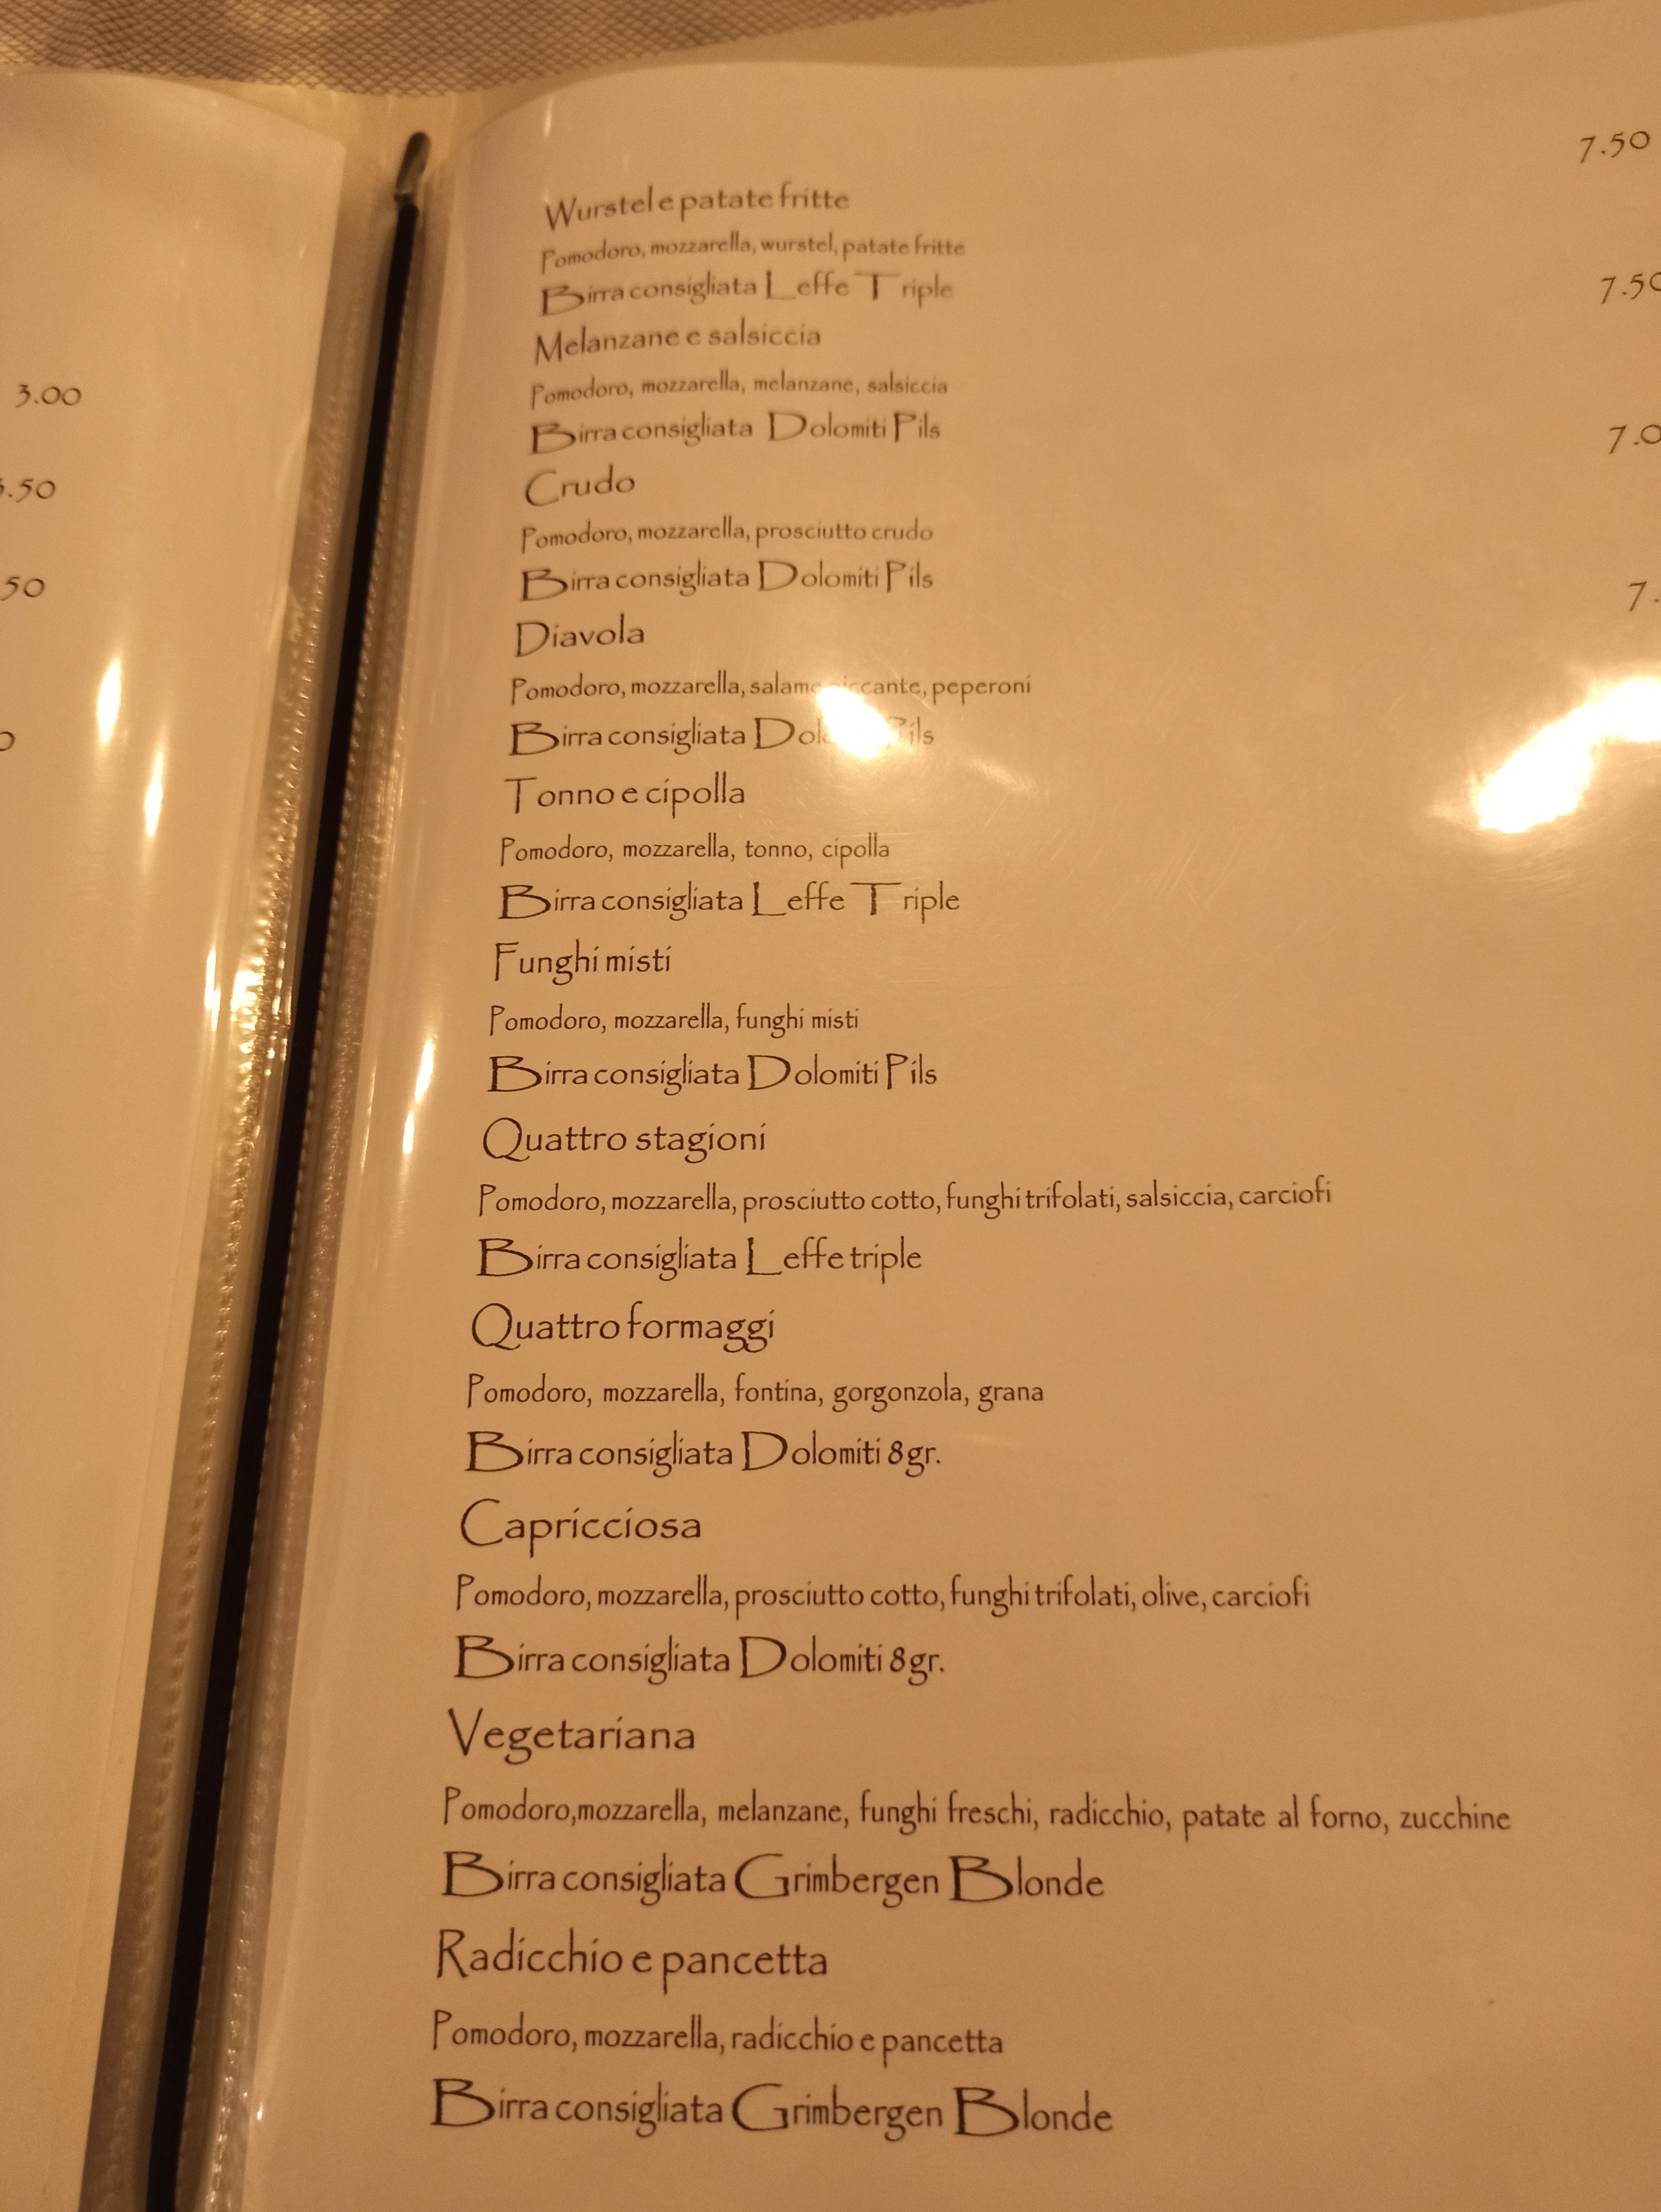 3.00
.50
50
Wurstel e patate fritte 7.50
Pomodoro, mozzarella, wurstel, patate fritte
Birra consigliata Leffe Triple
Melanzane e salsiccia 7.50
Pomodoro, mozzarella, melanzane, salsiccia
Birra consigliata Dolomiti Pils
Crudo 7.0
Pomodoro, mozzarella, prosciutto crudo
Birra consigliata Dolomiti Pils
Diavola 7.
Pomodoro, mozzarella, salame piccante, peperoni
Birra consigliata Dolomiti Pils
Tonno e cipolla
Pomodoro, mozzarella, tonno, cipolla
Birra consigliata Leffe Triple
Funghi misti
Pomodoro, mozzarella, funghi misti
Birra consigliata Dolomiti Pils
Quattro stagioni
Pomodoro, mozzarella, prosciutto cotto, funghi trifolati, salsiccia, carciofi
Birra consigliata Leffe triple
Quattro formaggi
Pomodoro, mozzarella, fontina, gorgonzola, grana
Birra consigliata Dolomiti 8gr.
Capricciosa
Pomodoro, mozzarella, prosciutto cotto, funghi trifolati, olive, carciofi
Birra consigliata Dolomiti 8gr.
Vegetariana
Pomodoro,mozzarella, melanzane, funghi freschi, radicchio, patate al forno, zucchine
Birra consigliata Grimbergen Blonde
Radicchio e pancetta
Pomodoro, mozzarella, radicchio e pancetta
Birra consigliata Grimbergen Blonde